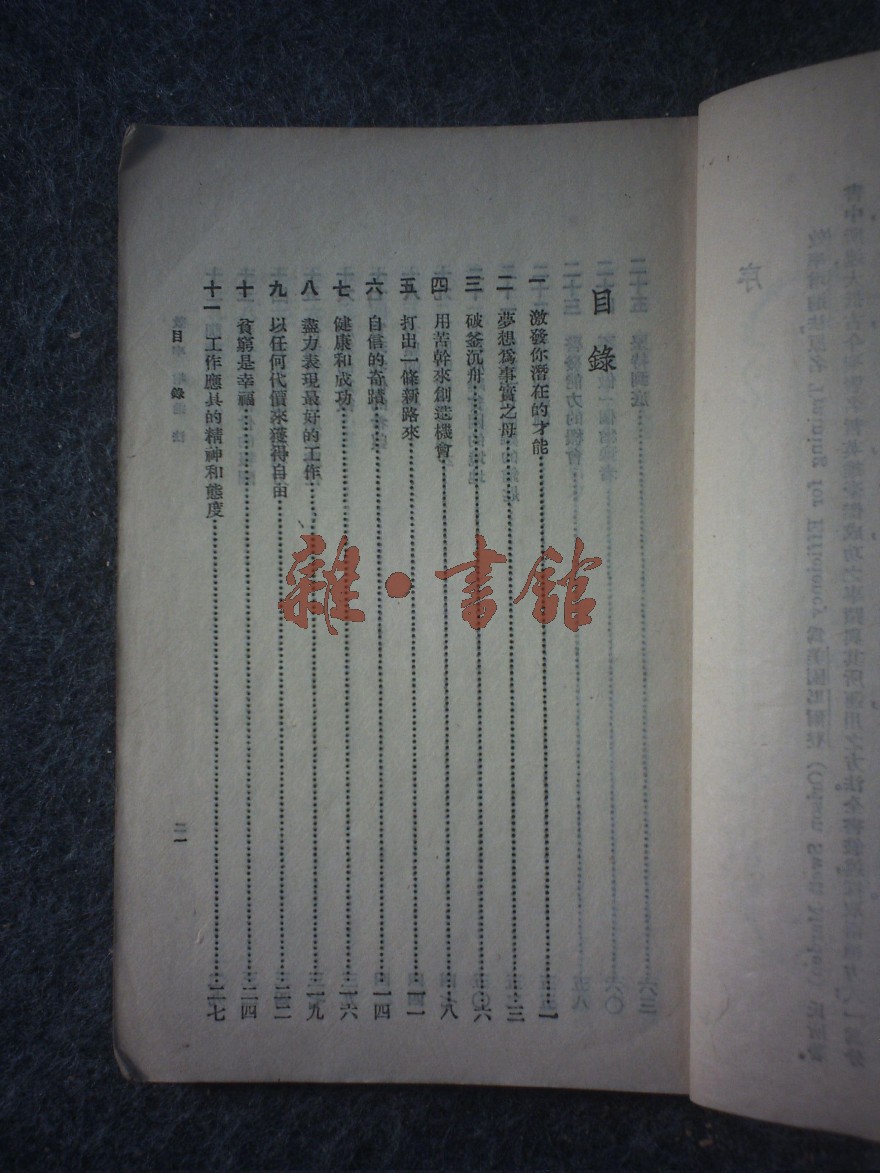 目錄
一 激發你潛在的才能……一
二 夢想為事實之母……三
三 破釜沉舟……六
四 用苦幹來創造機會……八
五 打出一條新路來……一一
六 自信的奇蹟……一四
七 健康和成功……一六
八 盡力表現最好的工作……一九
九 以任何代價來獲得自由……二二
十 貧窮是幸福……二四
十一 工作應具的精神和態度……二七
目錄
一
雜·書館